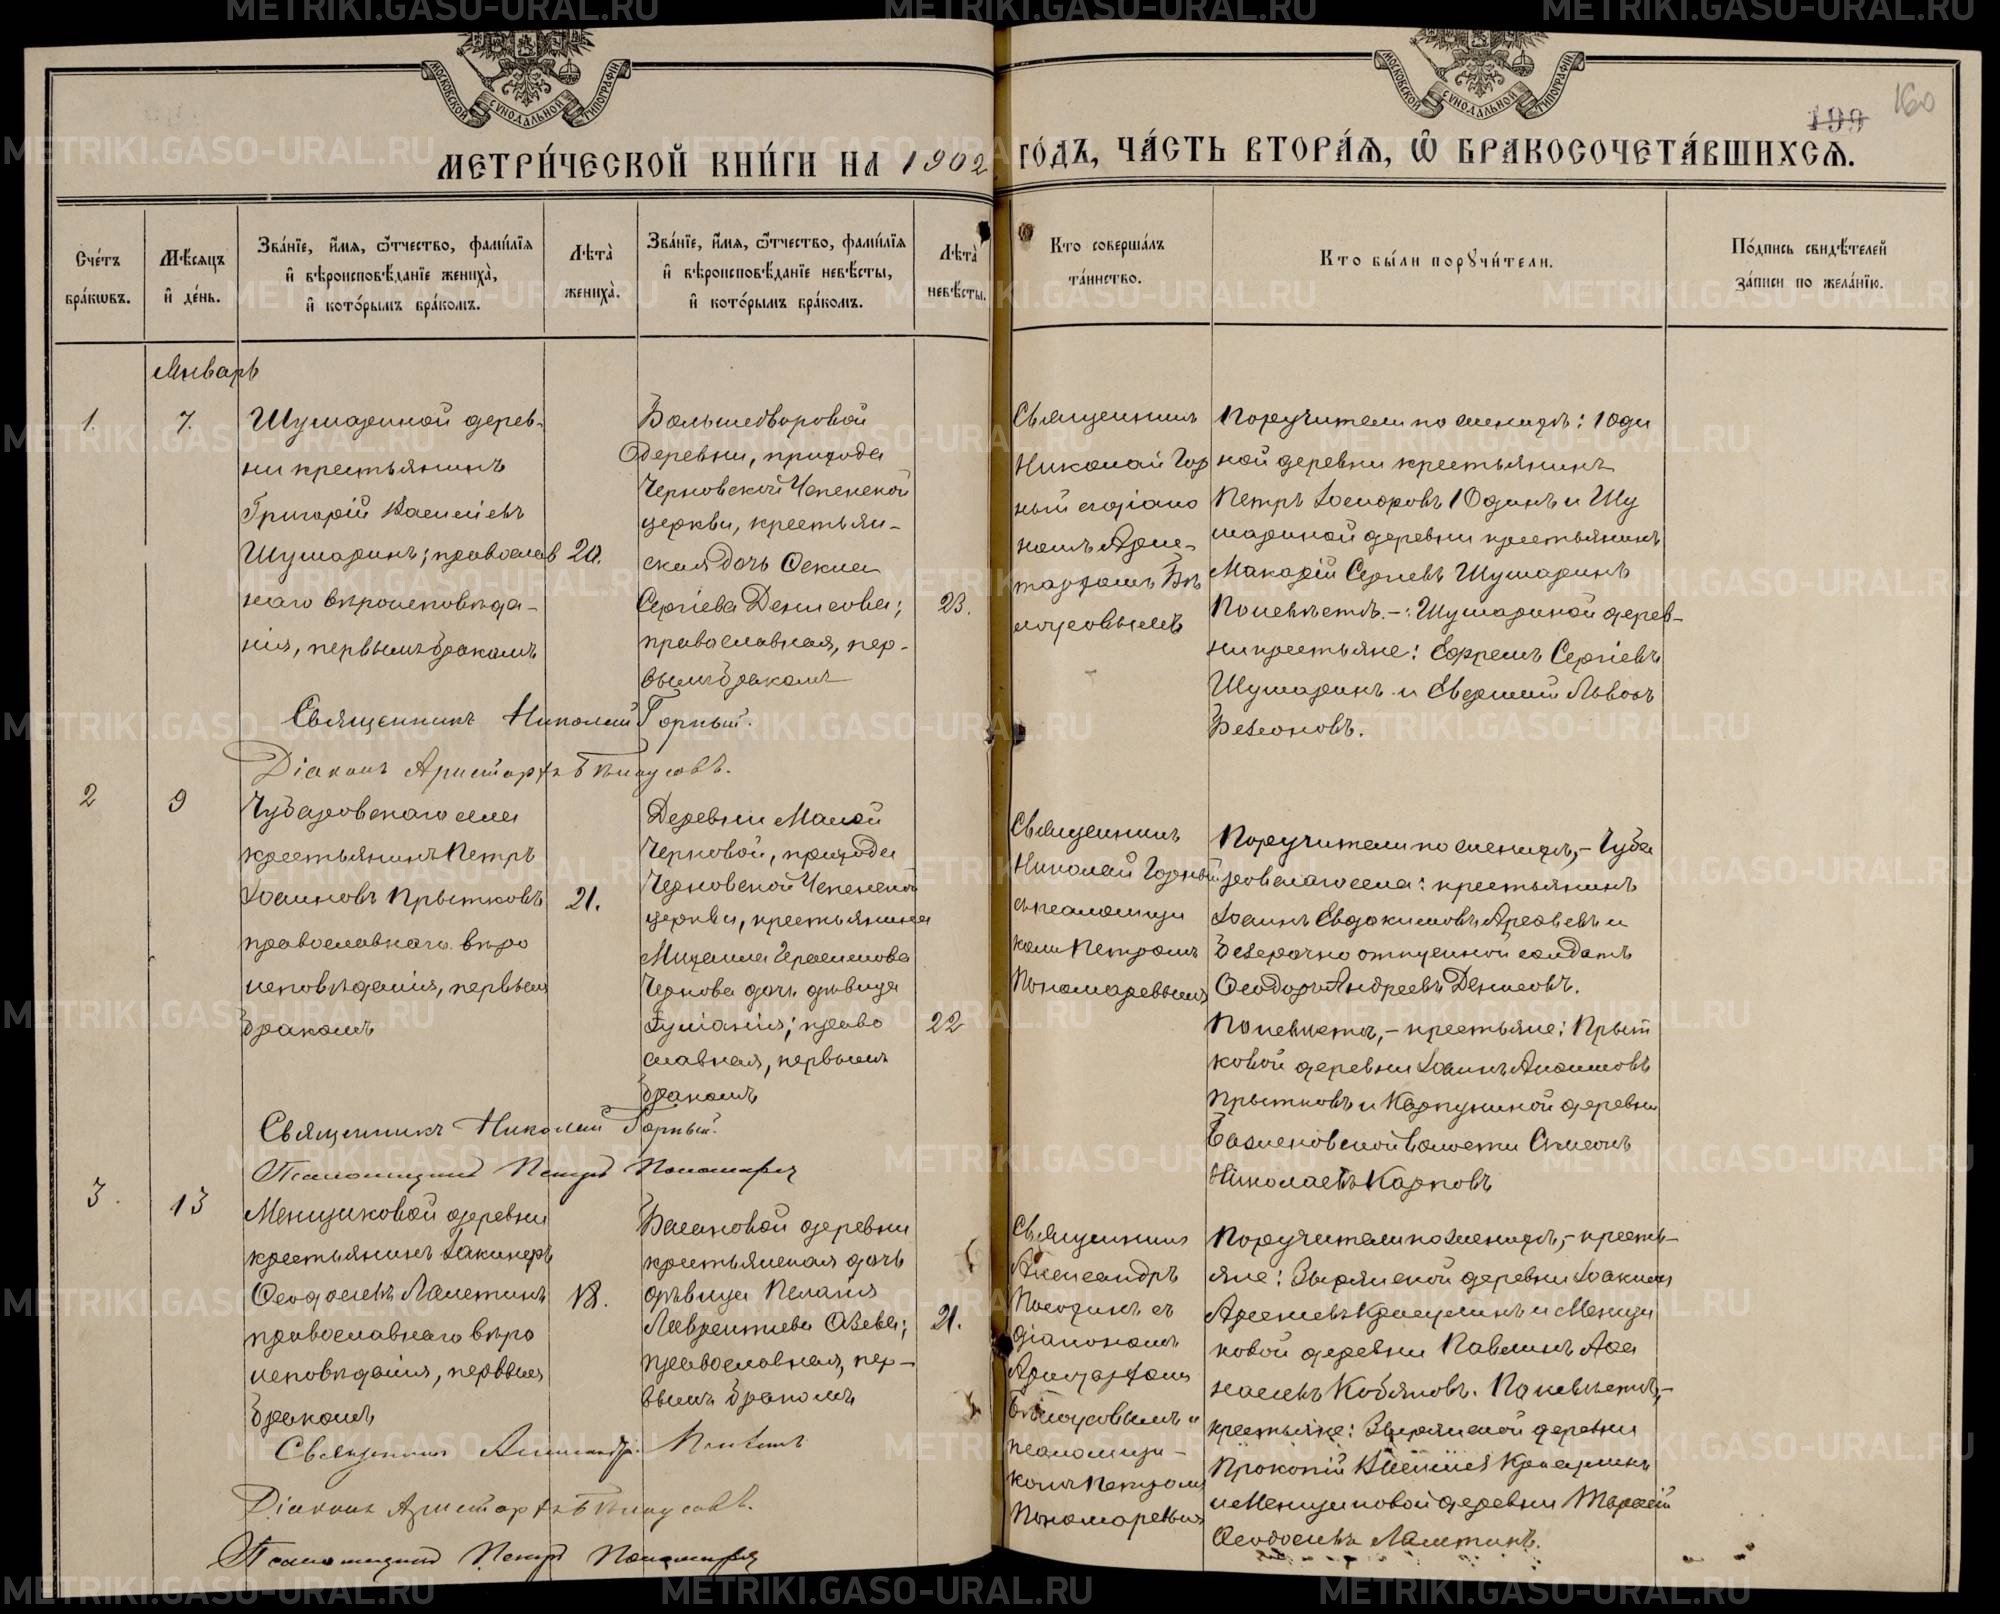 МЕТРИ́ЧЕСКОЙ КНИ́ГИ НА 1902 ГО́ДЪ, ЧА́СТЬ ВТОРА́Я, Ѡ БРАКОСОЧЕТА́ВШИХСЯ.
МОСКОВСКОЙ СУНОДАЛЬНОЙ ТИПОГРАФІИ
МОСКОВСКОЙ СУНОДАЛЬНОЙ ТИПОГРАФІИ
199
160
Сче́тъ
бра́кѡвъ.
Мѣ́сяцъ
и҆ де́нь.
Зва́нїе, и҆́мя, ѻ҆́тчество, фами́лїя
и҆ вѣроисповѣ́данїе жениха̀,
и҆ кото́рымъ бра́комъ.
Лѣта̀
жениха̀.
Зва́нїе, и҆́мя, ѻ҆́тчество, фами́лїя
и҆ вѣроисповѣ́данїе невѣ́сты,
и҆ кото́рымъ бра́комъ.
Лѣта̀
невѣ́сты.
Кто соверша́лъ
та́инство.
Кто бы́ли порꙋчи́тели.
По́дпись свидѣ́телей
за́писи по жела́нїю.
Январь
1.
7.
Шушариной дерев-
ни крестьянинъ
Григорій Василіевъ
Шушаринъ; православ
наго вѣроисповѣда-
нія, первымъ бракомъ
20.
Большедворовой
деревни, прихода
Черновской
церкви, крестьян-
ская дочь Ѳекла
Сергіева Денисова;
православная, пер-
вымъ бракомъ
23.
Священникъ
Николай Гор
ный съ діако
номъ Арис-
тархомъ Бѣ
лоусовымъ
Поручители по женихѣ: Юди
ной деревни крестьянинъ
Петръ Юдинъ и Шу
шариной деревни крестьянинъ
Макарій Сергіевъ Шушаринъ
По невѣстѣ:- Шушариной дерев-
ни крестьяне: Ефремъ Сергіевъ
Шушаринъ и Львовъ
Безсоновъ.
Священникъ Николай Горный.
Діаконъ Аристархъ Бѣлоусовъ.
2
9
Чубаровскаго села
крестьянинъ Петръ
Іоанновъ Прытковъ
православнаго вѣро
исповѣданія, первымъ
бракомъ
21.
Деревни Малой
Черновой, прихода
Черновской
церкви, крестьянина
Михаила Герасимова
Чернова дочь дѣвица
Іуліанія; право
славная, первымъ
бракомъ
22
Священникъ
Николай Горный
съ псаломщи
комъ Петромъ
Пономаревымъ
Поручители по женихѣ,- Чуба
ровскаго села: крестьянинъ
Іоаннъ Евдокимовъ Арефьевъ и
безсрочно отпускной солдатъ
Ѳеодоръ Андреевъ Денисовъ.
По невѣстѣ,- крестьяне: Прыт
ковой деревни Іоаннъ
Прытковъ и Карпуниной деревни
волости Симеонъ
Николаевъ Карповъ
Священникъ Николай Горный.
Псаломщикъ Петръ Пономаревъ
3.
13
Менщиковой деревни
крестьянинъ
Ѳеодосіевъ Лапотинъ
православнаго вѣро
исповѣданія, первымъ
бракомъ
18.
Басановой деревни
крестьянская дочь
дѣвица Пелагія
Лаврентіева
православная, пер-
вымъ бракомъ
21.
Священникъ
Александръ
съ
діакономъ
Аристархомъ
Бѣлоусовымъ и
псаломщи-
комъ Петромъ
Пономаревымъ
Поручители по женихѣ,- кресть-
яне: Зырянской деревни Іоакимъ
и Менщи
ковой деревни Павлинъ Аѳа
насьевъ Кобяковъ. По невѣстѣ,-
крестьяне: Зырянской деревни
Прокопій
и Менщиковой деревни Тарасій
Ѳеодосіевъ Лапотинъ.
Священникъ Александръ
Діаконъ Аристархъ Бѣлоусовъ.
Псаломщикъ Петръ Пономаревъ
METRIKI.GASO-URAL.RU